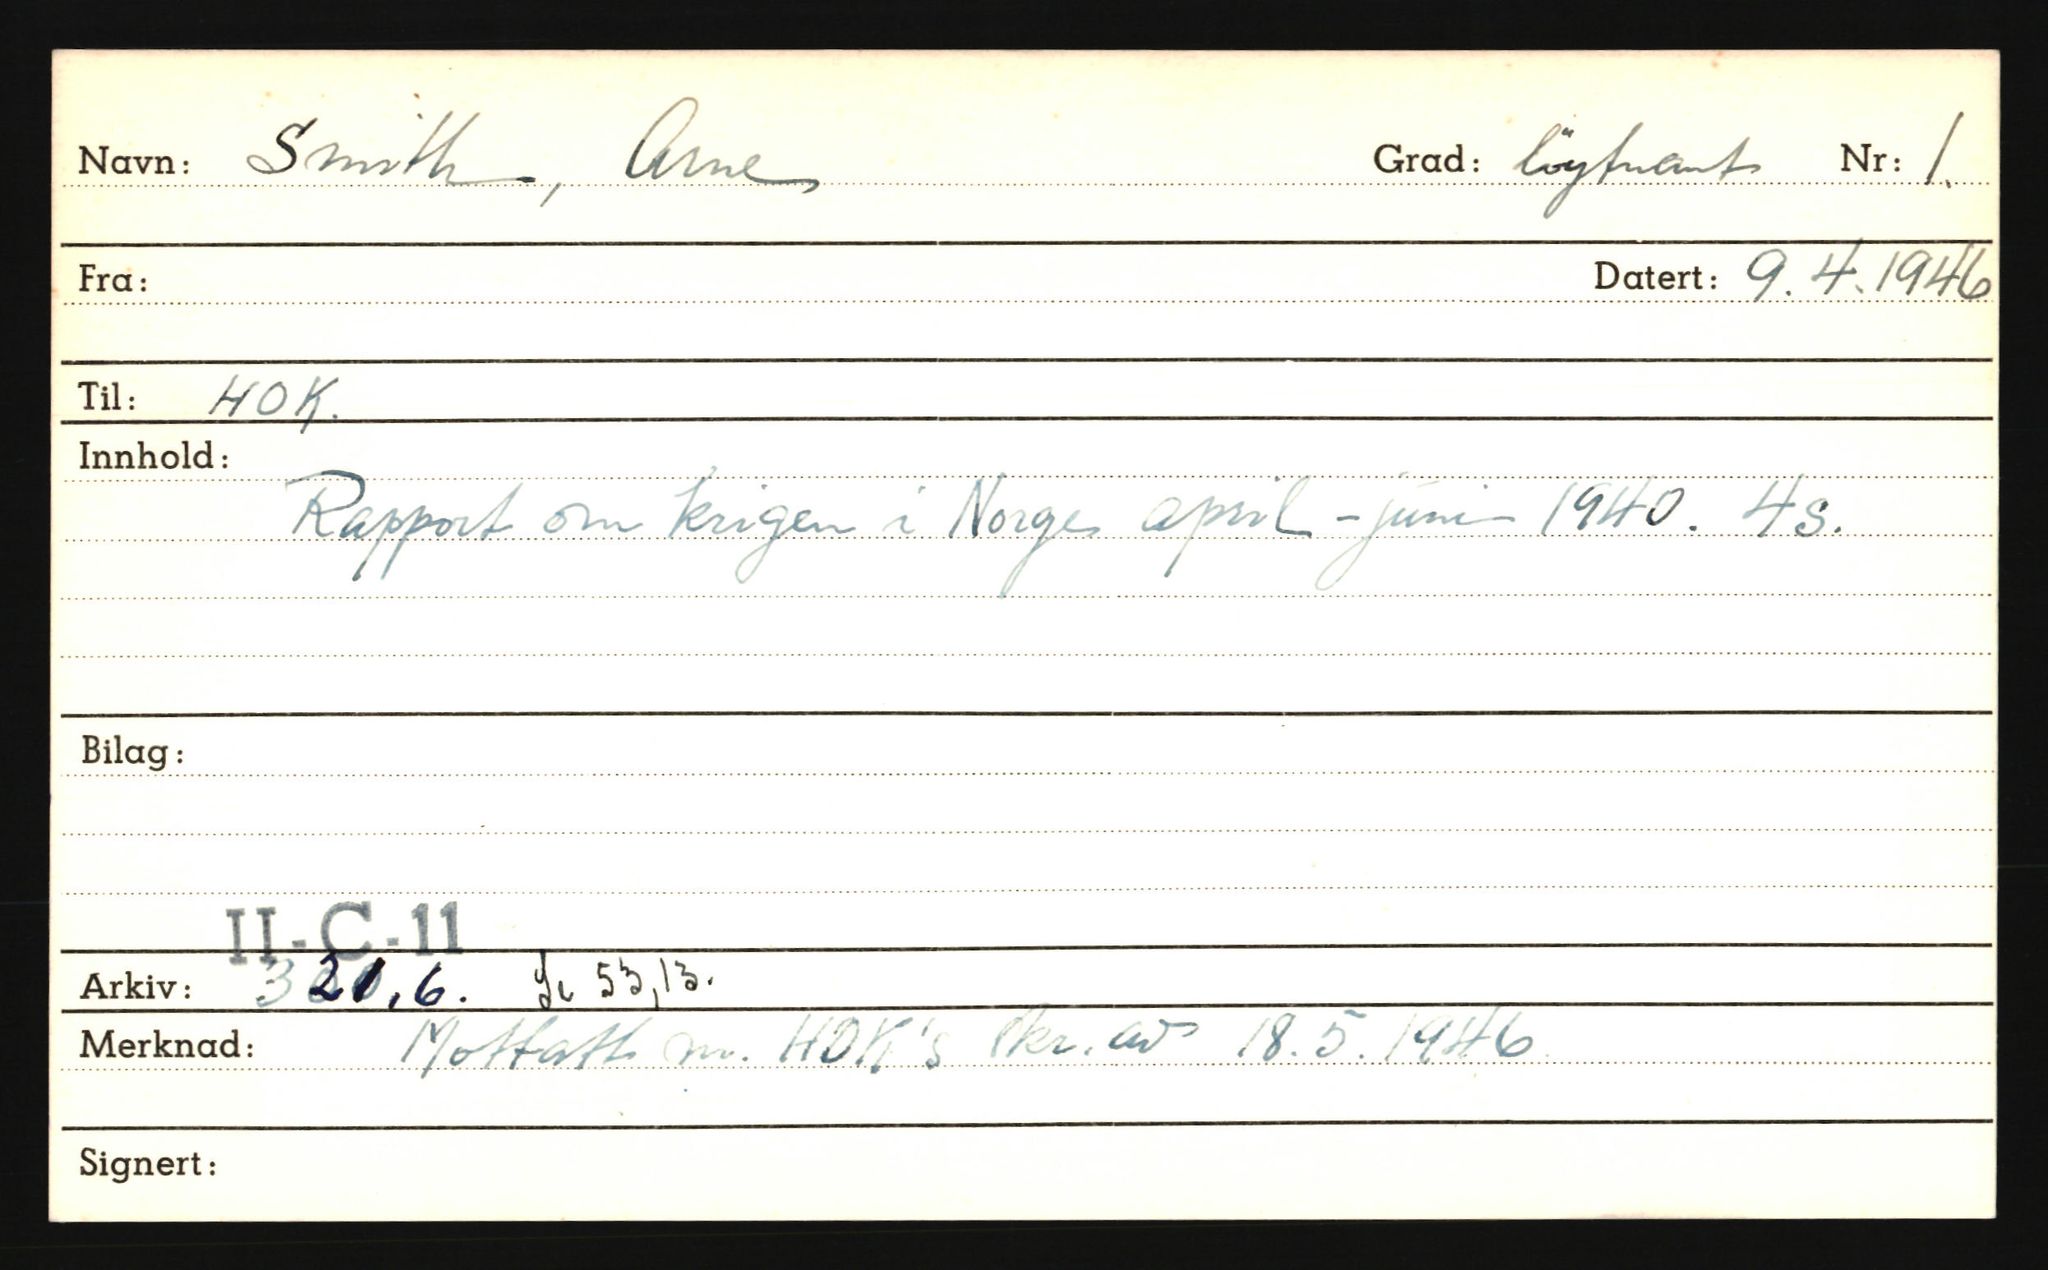 Navn: Smith, Arne Grad: löytnant Nr: 1.
Fra: Datert: 9.4.1946
Til: HOK.
Innhold:
Rapport om krigen i Norge april - juni 1940. 4s.
Bilag:
II-C-11
Arkiv: 21,6. 53,13.
Merknad: Mottatt m. HOK's skr. av 18.5.1946
Signert: